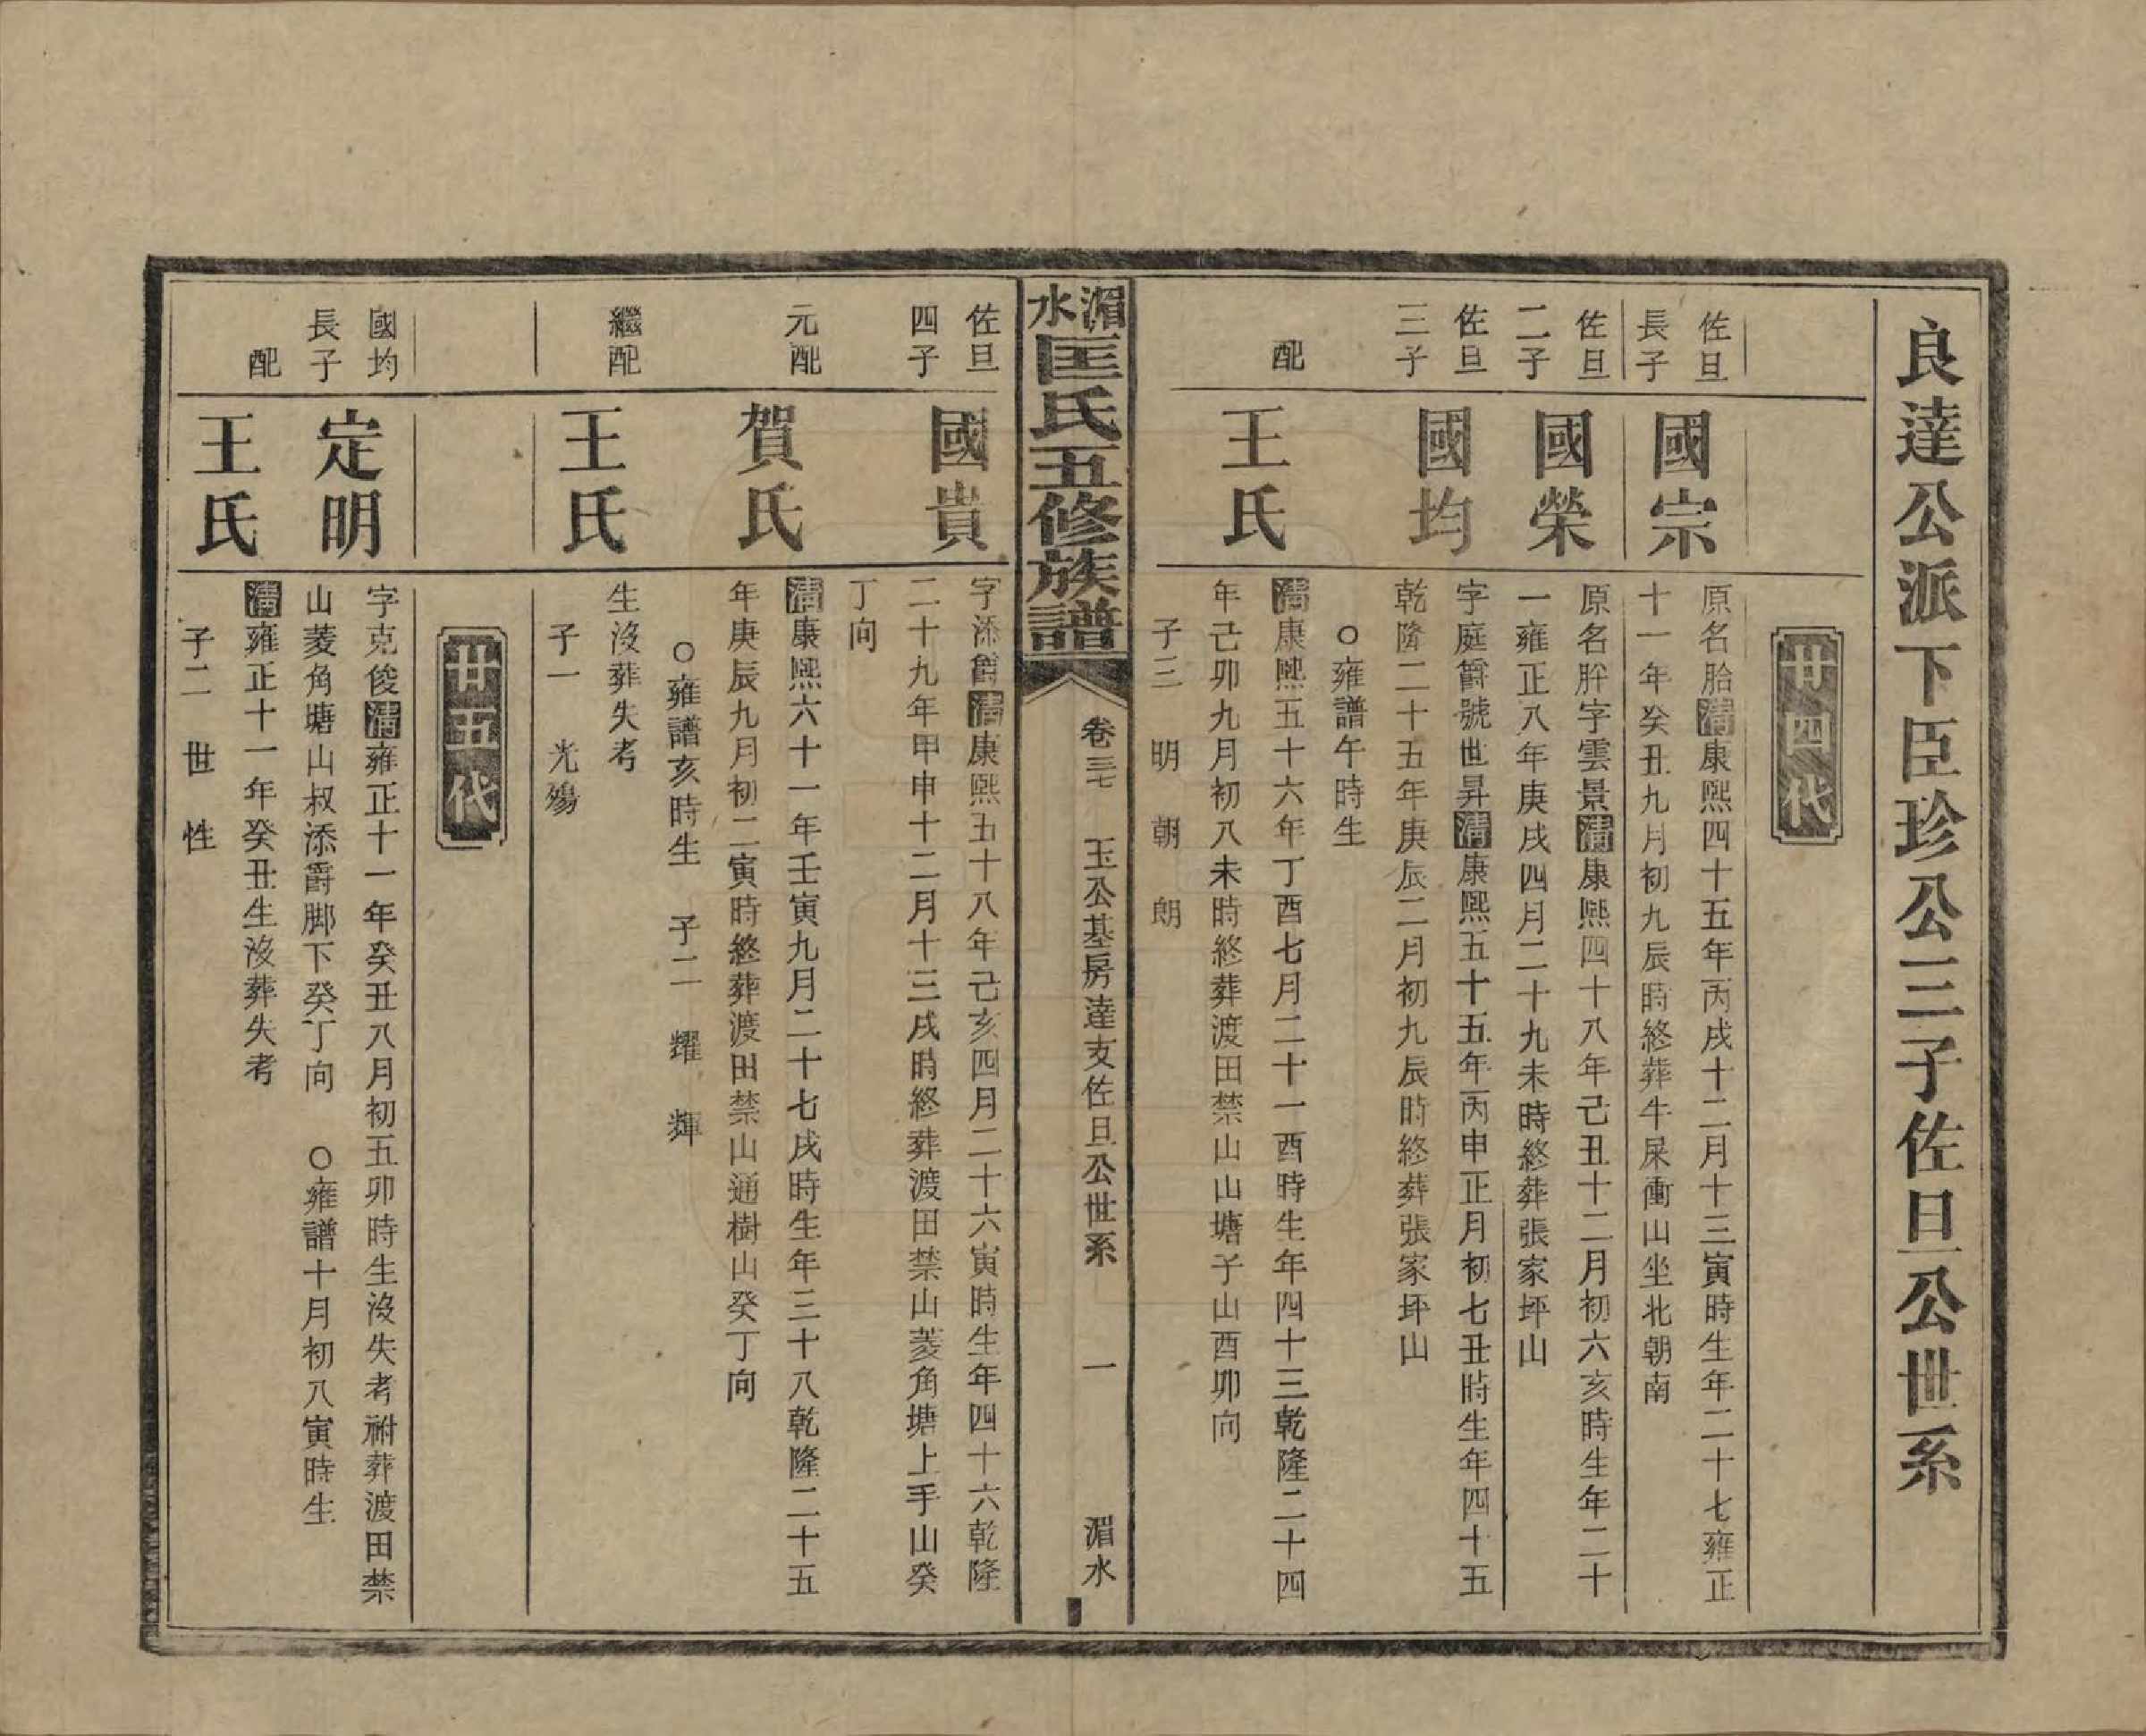 良達公派下臣珍公三子佐旦公世系
廿四代
佐旦
長子
國宗
原名胎清康熙四十五年丙戌十二月十三寅時生年二十七雍正
十一年癸丑九月初九辰時終葬牛屎衝山坐北朝南
佐旦
二子
國榮
原名胖字雲景清康熙四十八年己丑十二月初六亥時生年二十
一雍正八年庚戌四月二十九未時終葬張家坪山
佐旦
三子
國均
字庭爵號世昇清康熙五十五年丙申正月初七丑時生年四十五
乾隆二十五年庚辰二月初九辰時終葬張家坪山
○雍譜午時生
配
王氏
清康熙五十六年丁酉七月二十一酉時生年四十三乾隆二十四
年己卯九月初八未時終葬渡田禁山山塘子山酉卯向
子三 明 朝 朗
湄水匡氏五修族譜
卷三七 玉公基房達支佐旦公世系 一 湄水
佐旦
四子
國貴
字添爵清康熙五十八年己亥四月二十六寅時生年四十六乾隆
二十九年甲申十二月十三戌時終葬渡田禁山菱角塘上手山癸
丁向
元配
賀氏
清康熙六十一年壬寅九月二十七戌時生年三十八乾隆二十五
年庚辰九月初二寅時終葬渡田禁山通樹山癸丁向
○雍譜亥時生 子二 耀 輝
繼配
王氏
生沒葬失考
子一 光殤
廿五代
國均
長子
定明
字克俊清雍正十一年癸丑八月初五卯時生沒失考祔葬渡田禁
山菱角塘山叔添爵脚下癸丁向 ○雍譜十月初八寅時生
配
王氏
清雍正十一年癸丑生沒葬失考
子二 世 性